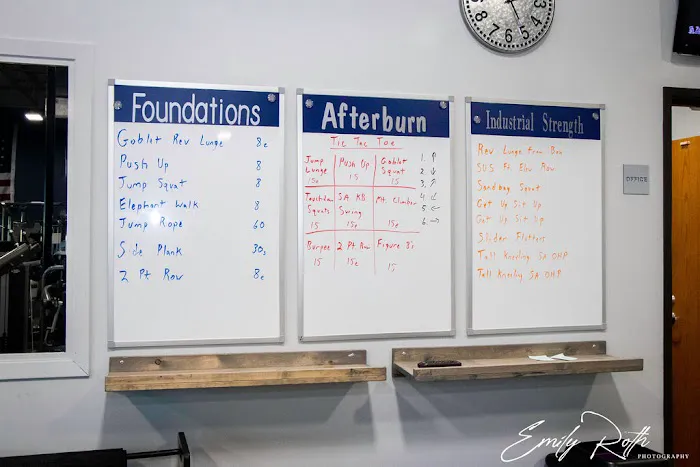 Foundations
Goblet Rev Lunge 8e
Push Up 8
Jump Squat 8
Elephant Walk 8
Jump Rope 60
Side Plank 30s
2 Pt Row 8e
Afterburn
Tic Tac Toe
Jump Lunge 15e
Push Up 15
Goblet Squat 15
Squats 15
SA KB Swing 15e
Mt. Climber 15e
Burpee 15
2 Pt Row 15e
Figure 8's 15
1. ↑
2. ↓
3. ↗
4. ↙
5. ←
6. →
Industrial Strength
Rev Lunge From Box
SUS Ft. Elev Row
Sandbag Squat
Get Up Sit Up
Get Up Sit Up
Slider Flutters
Tall Kneeling SA OHP
Tall Kneeling SA OHP
OFFICE
5 6 7 8
Emily Roth
PHOTOGRAPHY